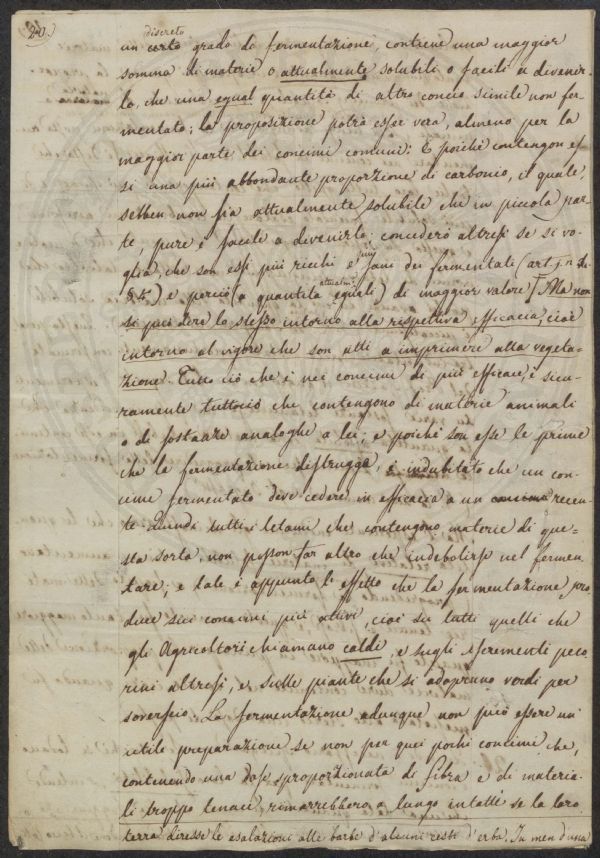 20.)
discreto
un certo grado di fermentazione, contiene una maggior
somma di materie o attualmente solubili o facili a divenir-
lo, che una egual quantità di altro concio simile non fer-
mentato; la proposizione potrà esser vera, almeno per la
maggior parte dei concimi comuni: E poiché contengon es-
si una più abbondante proporzione di carbonio, il quale,
sebben non sia attualmente solubile che in piccola par-
te, pure è facile a devenirlo; concederò altresì se si vo-
glia, che son essi più ricchi e dei fermentati (art.
§ 4.) e perciò (a quantità attualmente eguali) di maggior valore. Ma non
si può dire lo stesso intorno alla rispettiva efficacia, cioè
intorno al vigore che son atti a imprimere alla vegeta-
zione. Tutto ciò che è nei concimi di più efficace, è sicu-
ramente tuttociò che contengono di materie animali
o di sostanze analoghe a lei; e poiché son esse le prime
che la fermentazione distrugga, è indubitato che un con-
cime fermentato deve cedere in efficacia a un concime recen-
te. Quindi tutti i letami che contengono materie di que-
sta sorta, non posson far altro che indebolirsi nel fermen-
tare; e tale è appunto l'effetto che la fermentazione pro-
duce sui concimi più attivi, cioè su tutti quelli che
gli Agricoltori chiamano caldi, e sugli escrementi peco-
rini altresì, e sulle piante che si adoprano verdi per
soverscio. La fermentazione adunque non può essere un'
utile preparazione se non per quei pochi concimi che,
contenendo una dose sproporzionata di fibra e di materia-
li troppo tenaci, rimarrebbero a lungo intatti se la loro
terra diresse le esalazioni alle barbe d'alcuni cesti d'erba. In men d'una